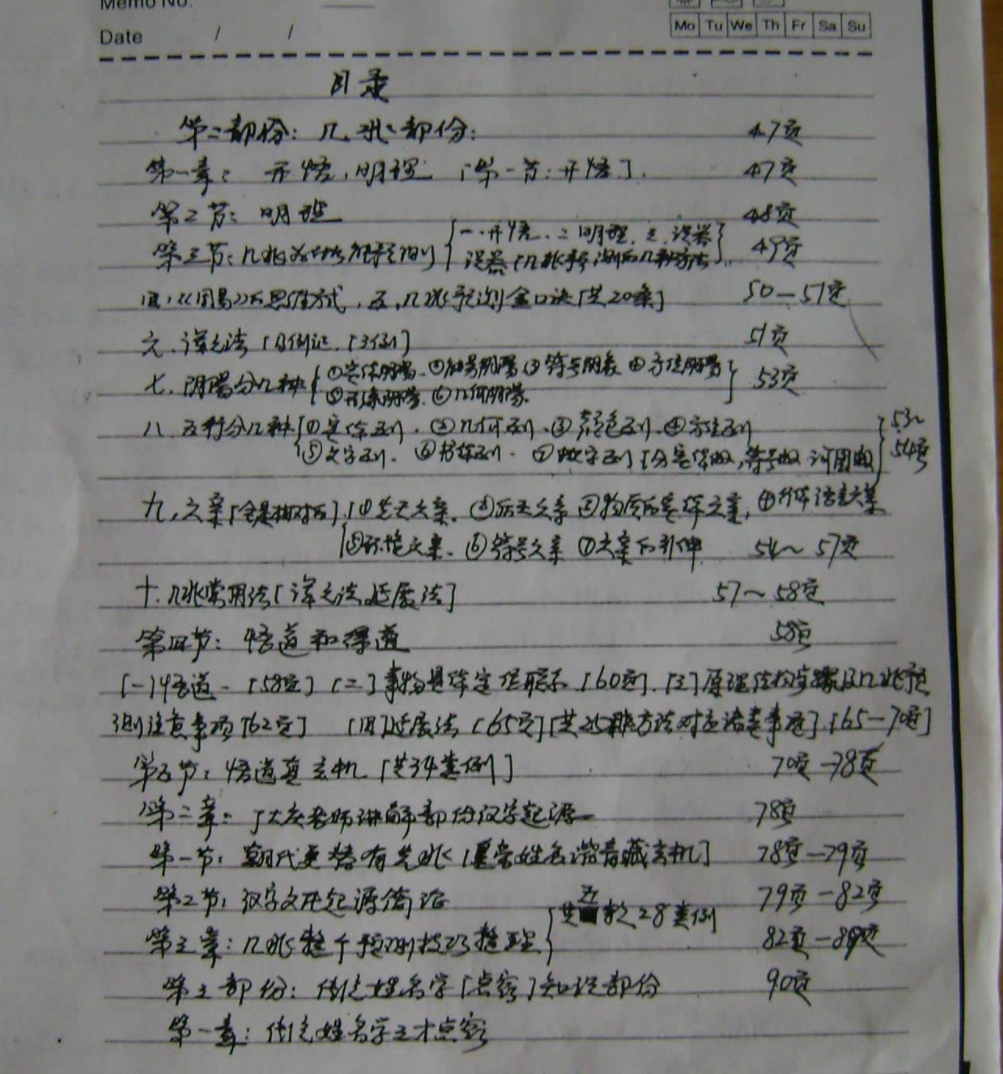 Memo No.
Date / /
Mo Tu We Th Fr Sa Su
目录
第二部份：几兆部份： 47页
第一章：开悟，明理 [第一节：开悟]. 47页
第二节：明理 48页
第三节：几兆 {一.开悟、二明理、三、误 49页
几兆 几种方法}
四，《周易》的思维方式，五，几兆预测金口诀[共20条] 50—51页
六、译充法 [3例] 51页
七、阴阳分几种 {①实体阴阳、②阴阳③符号阴阳④方位阴阳 53页
⑤阴阳、⑥几何阴阳}
八、五行分几种 {①实体五行、②几何五行、③颜色五行、④方位五行 53~
⑤文字五行、⑥形体五行、⑦数字五行[分实体数,符号数,河图数} 54页
九，六亲[全是相对的] {①先天六亲、②后天六亲③物质的实体六亲，④行体语言六亲
⑤环境六亲、⑥符号六亲⑦六亲的引伸 54～57页
十、几兆常用法[译充法,延展法] 57～58页
第四节：悟道和得道 58页
[一]悟道-[58页] [二]事物具体定位 [60页].[三]原理 步骤及几兆预
测注意事项[62页] [四]延展法 [65页][共 种方法对应诸类事项].[65—70页]
第五节：悟道真玄机 [共34类例] 70页—78页
第二章：丁大庆老师讲解部份汉字起源 78页
第一节：朝代更替有先兆 [皇帝姓名谐音藏玄机] 78页—79页
第二节：汉字文化起源简论 79页—82页
第三章：几兆整个预测技巧整理 {共五款28类例 82页—89页
第三部份：传统姓名学[点窍]知识部份 90页
第一章：传统姓名学三才点窍